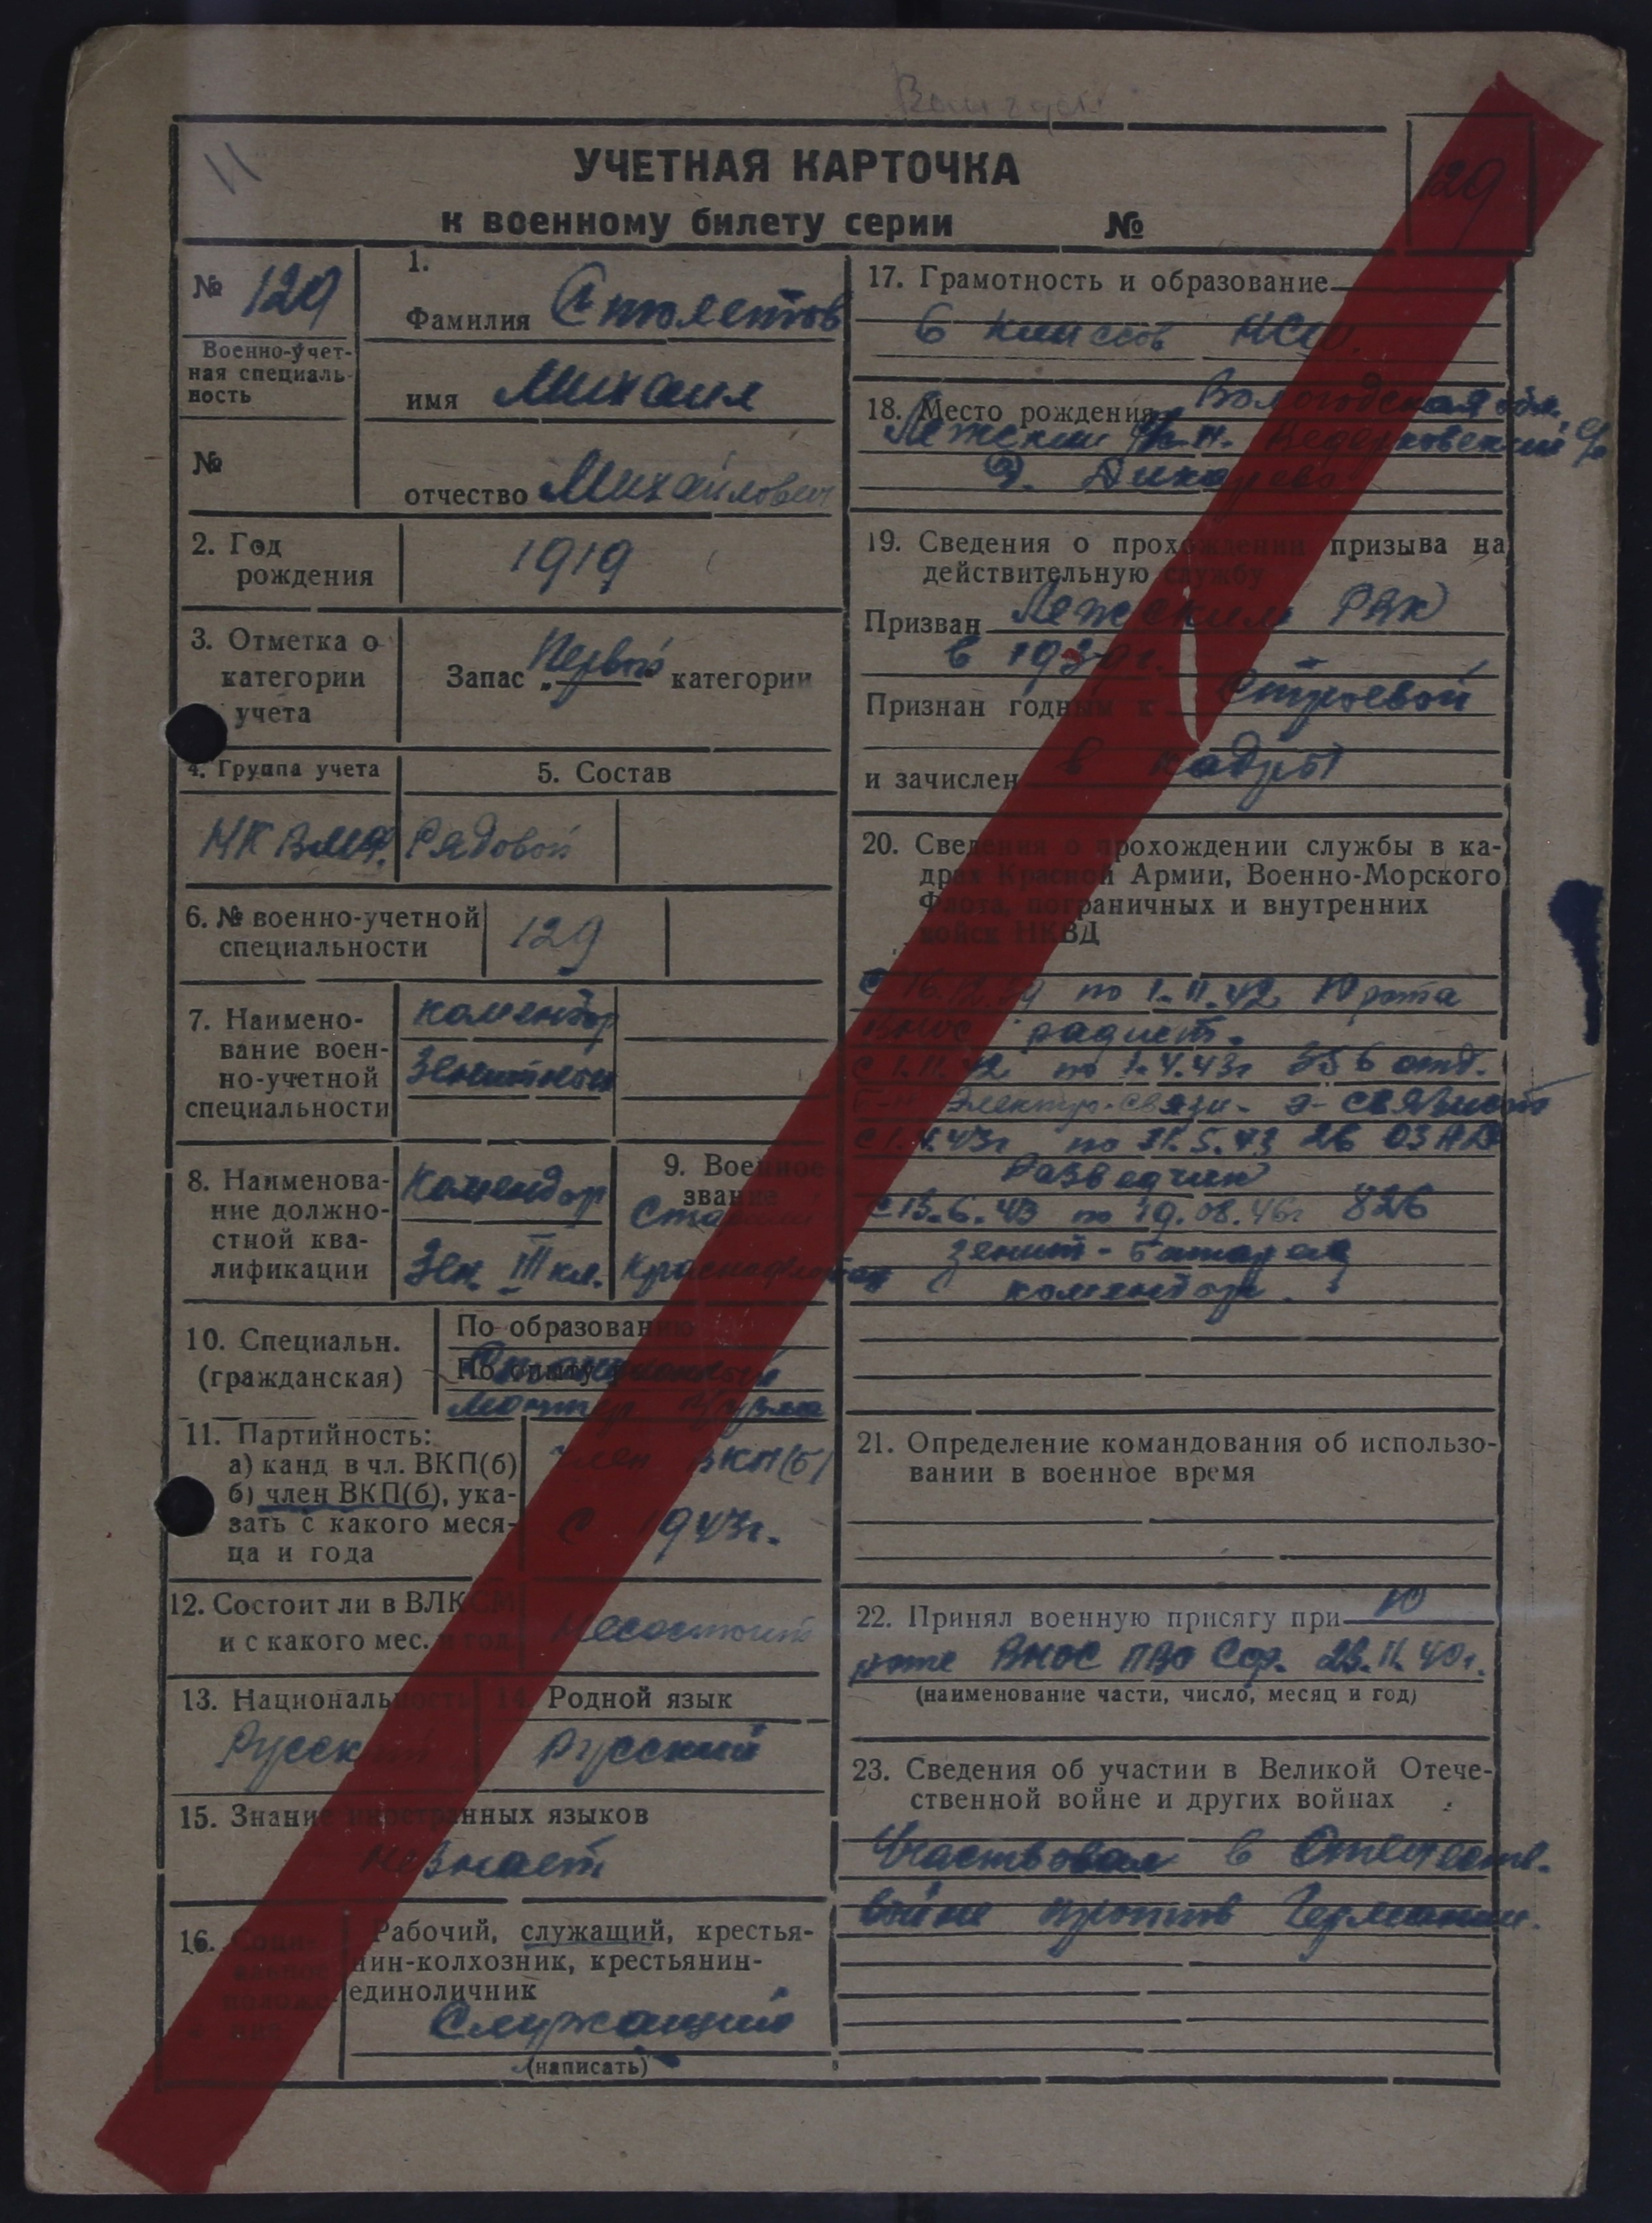 УЧЕТНАЯ КАРТОЧКА
к военному билету серии №
129
№ 129
Военно-учет-
ная специаль-
ность
№
1.
Фамилия Столетов
имя Михаил
отчество Михайлович
2. Год
рождения
1919
3. Отметка о
категории
учета
Запас „Первой категории
4. Группа учета
5. Состав
МК ВМФ.
Рядовой
6. № военно-учетной
специальности
129
7. Наимено-
вание воен-
но-учетной
специальности
комендор
Зенитный
8. Наименова-
ние должно-
стной ква-
лификации
Комендор
Зен. III кл.
9. Военное
звание
Старший
Краснофлотец
10. Специальн.
(гражданская)
По образованию
По опыту
11. Партийность:
а) канд. в чл. ВКП(б)
б) член ВКП(б), ука-
зать с какого меся-
ца и года
Член ВКП(б)
с 1943г.
12. Состоит ли в ВЛКСМ
и с какого мес. и год.
Несостоит
13. Национальность
Русский
14. Родной язык
Русский
15. Знание иностранных языков
Незнает
16. Соци-
альное
положе-
ние
Рабочий, служащий, крестья-
нин-колхозник, крестьянин-
единоличник
Служащий
(написать)
17. Грамотность и образование
6 классов НСШ.
18. Место рождения Вологодская обл.
Лежский р-н. Ведерковский с/с
д. Дикарево
19. Сведения о прохождении призыва на
действительную службу
Призван Лежским РВК
в 1939г.
Признан годным к строевой
и зачислен в кадры
20. Сведения о прохождении службы в ка-
драх Красной Армии, Военно-Морского
Флота, пограничных и внутренних
войск НКВД
с 16.12.39 по 1.11.42 10 рота
ВНОС радист.
с 1.11.42 по 1.4.43г 356 отд.
б-н Электро-связи - э-связист
с 1.4.43г по 31.5.43 26 ОЗАД
Разведчик
с 13.6.43 по 19.08.46г 826
зенит-батарея
комендор.
21. Определение командования об использо-
вании в военное время
22. Принял военную присягу при 10
роте ВНОС ПВО Сор. 23.II.40г.
(наименование части, число, месяц и год)
23. Сведения об участии в Великой Отече-
ственной войне и других войнах
Участвовал в Отечеств.
войне против Германии.